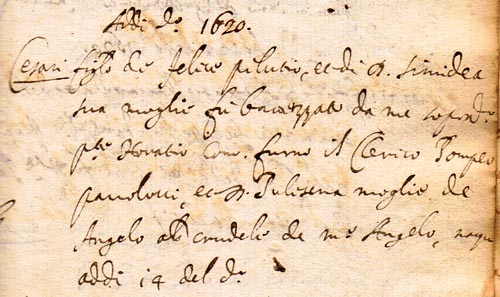 Addi d.º 1620.
Cesari figlo de felice pilutio, et di D. simidea
sua moglie fu batezzato da me sopradº
Horatio Com. furno il Clerico Pompeo
et D. Pulisena moglie de
Angelo crudele de mº Angelo, naque
addi 14 del dº